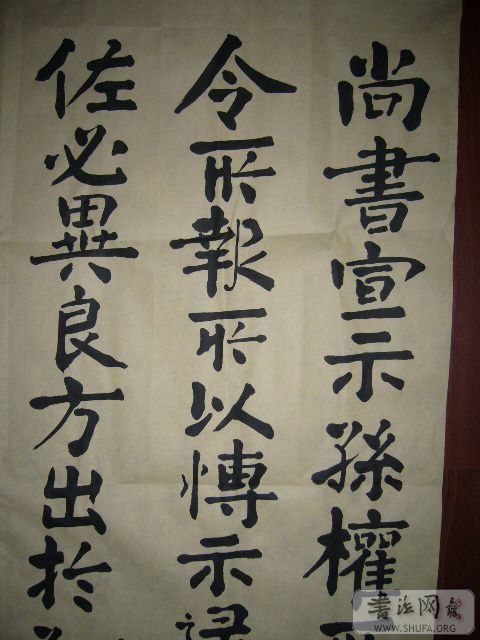 尚書宣示孫權
令所報所以博示
佐必異良方出於
書法网
WWW.SHUFA.ORG